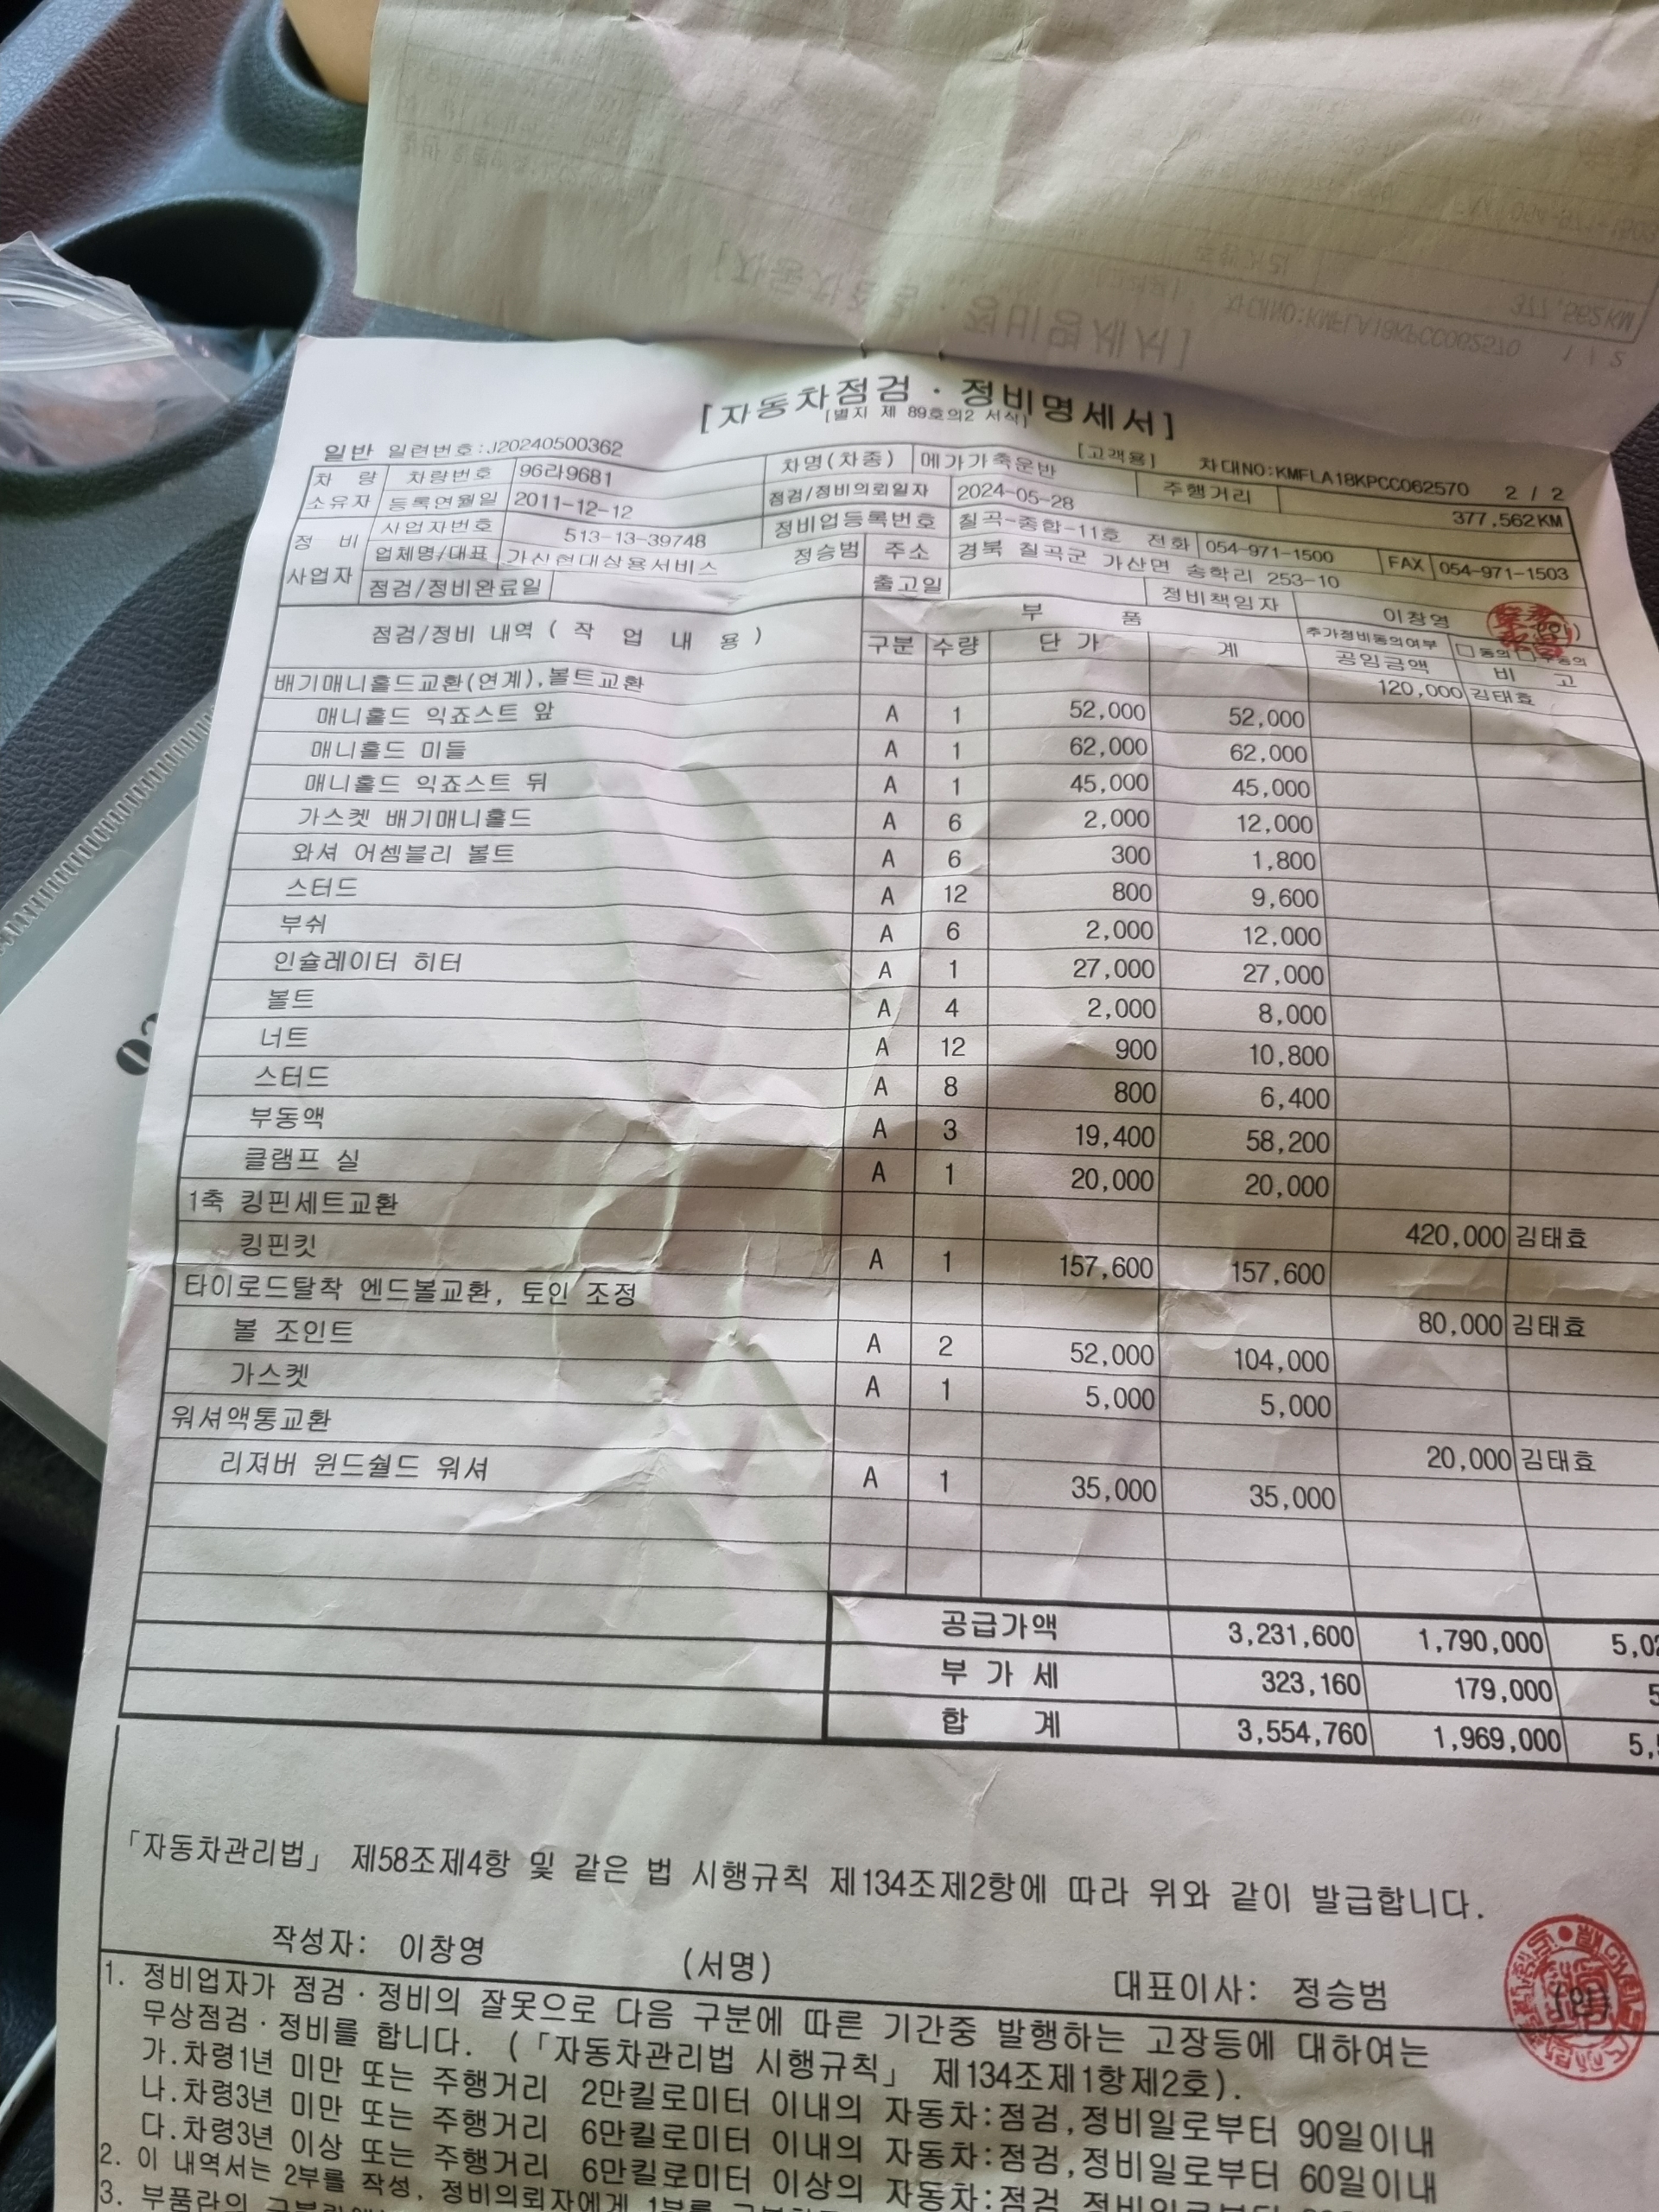 [자동차점검 · 정비명세서]
[별지 제 89호의2 서식]
일반 일련번호:J20240500362 [고객용] 차대NO:KMFLA18KPCC062570 2 / 2
차 량 차량번호 96라9681 차명(차종) 메가가축운반 주행거리 377,562KM
소유자 등록연월일 2011-12-12 점검/정비의뢰일자 2024-05-28
정 비 사업자번호 513-13-39748 정비업등록번호 칠곡-종합-11호 전화 054-971-1500 FAX 054-971-1503
사업자 업체명/대표 가산현대상용서비스 정승범 주소 경북 칠곡군 가산면 송학리 253-10
점검/정비완료일 출고일 정비책임자 이창영
점검/정비 내역 ( 작 업 내 용 ) 부 품 추가정비동의여부 □동의 □
구분 수량 단 가 계 공임금액 비 고
배기매니홀드교환(연계),볼트교환 120,000 김태효
매니홀드 익죠스트 앞 A 1 52,000 52,000
매니홀드 미들 A 1 62,000 62,000
매니홀드 익죠스트 뒤 A 1 45,000 45,000
가스켓 배기매니홀드 A 6 2,000 12,000
와셔 어셈블리 볼트 A 6 300 1,800
스터드 A 12 800 9,600
부쉬 A 6 2,000 12,000
인슐레이터 히터 A 1 27,000 27,000
볼트 A 4 2,000 8,000
너트 A 12 900 10,800
스터드 A 8 800 6,400
부동액 A 3 19,400 58,200
클램프 실 A 1 20,000 20,000
1축 킹핀세트교환 420,000 김태효
킹핀킷 A 1 157,600 157,600
타이로드탈착 엔드볼교환, 토인 조정 80,000 김태효
볼 조인트 A 2 52,000 104,000
가스켓 A 1 5,000 5,000
워셔액통교환 20,000 김태효
리져버 윈드쉴드 워셔 A 1 35,000 35,000
공급가액 3,231,600 1,790,000
부 가 세 323,160 179,000
합 계 3,554,760 1,969,000
「자동차관리법」 제58조제4항 및 같은 법 시행규칙 제134조제2항에 따라 위와 같이 발급합니다.
작성자: 이창영 (서명) 대표이사: 정승범 (인)
1. 정비업자가 점검 · 정비의 잘못으로 다음 구분에 따른 기간중 발행하는 고장등에 대하여는
무상점검 · 정비를 합니다. (「자동차관리법 시행규칙」 제134조제1항제2호).
가.차령1년 미만 또는 주행거리 2만킬로미터 이내의 자동차:점검,정비일로부터 90일이내
나.차령3년 미만 또는 주행거리 6만킬로미터 이내의 자동차:점검,정비일로부터 60일이내
다.차령3년 이상 또는 주행거리 6만킬로미터 이상의 자동차:점검,정비일로부터
2. 이 내역서는 2부를 작성, 정비의뢰자에게 1부를
3. 부품란의